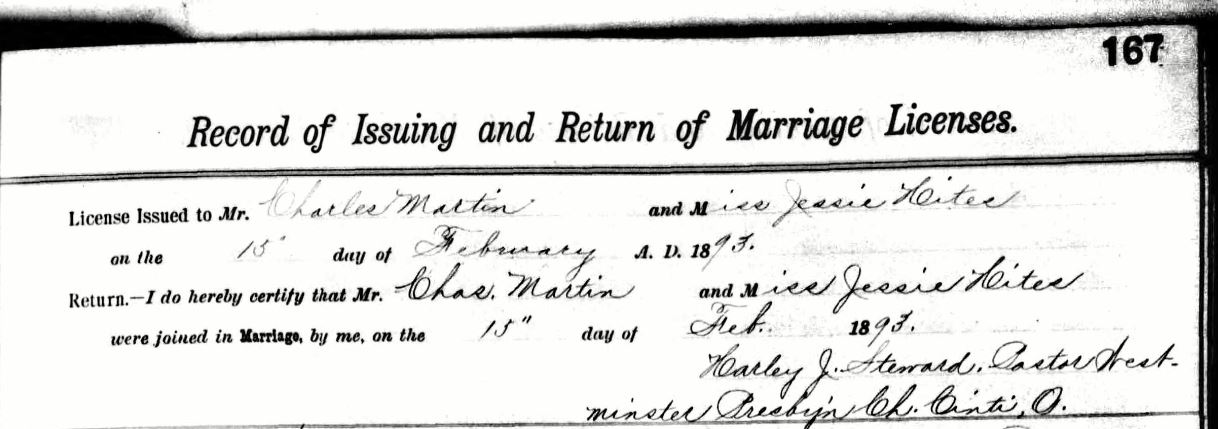 167
Record of Issuing and Return of Marriage Licenses.
License Issued to Mr. Charles Martin and Miss Jessie Hites
on the 15" day of February A. D. 1893.
Return.—I do hereby certify that Mr. Chas. Martin and Miss Jessie Hites
were joined in Marriage, by me, on the 15" day of Feb. 1893.
Harley J. Steward, Pastor West-
minster Presbyn Ch. Cinti, O.